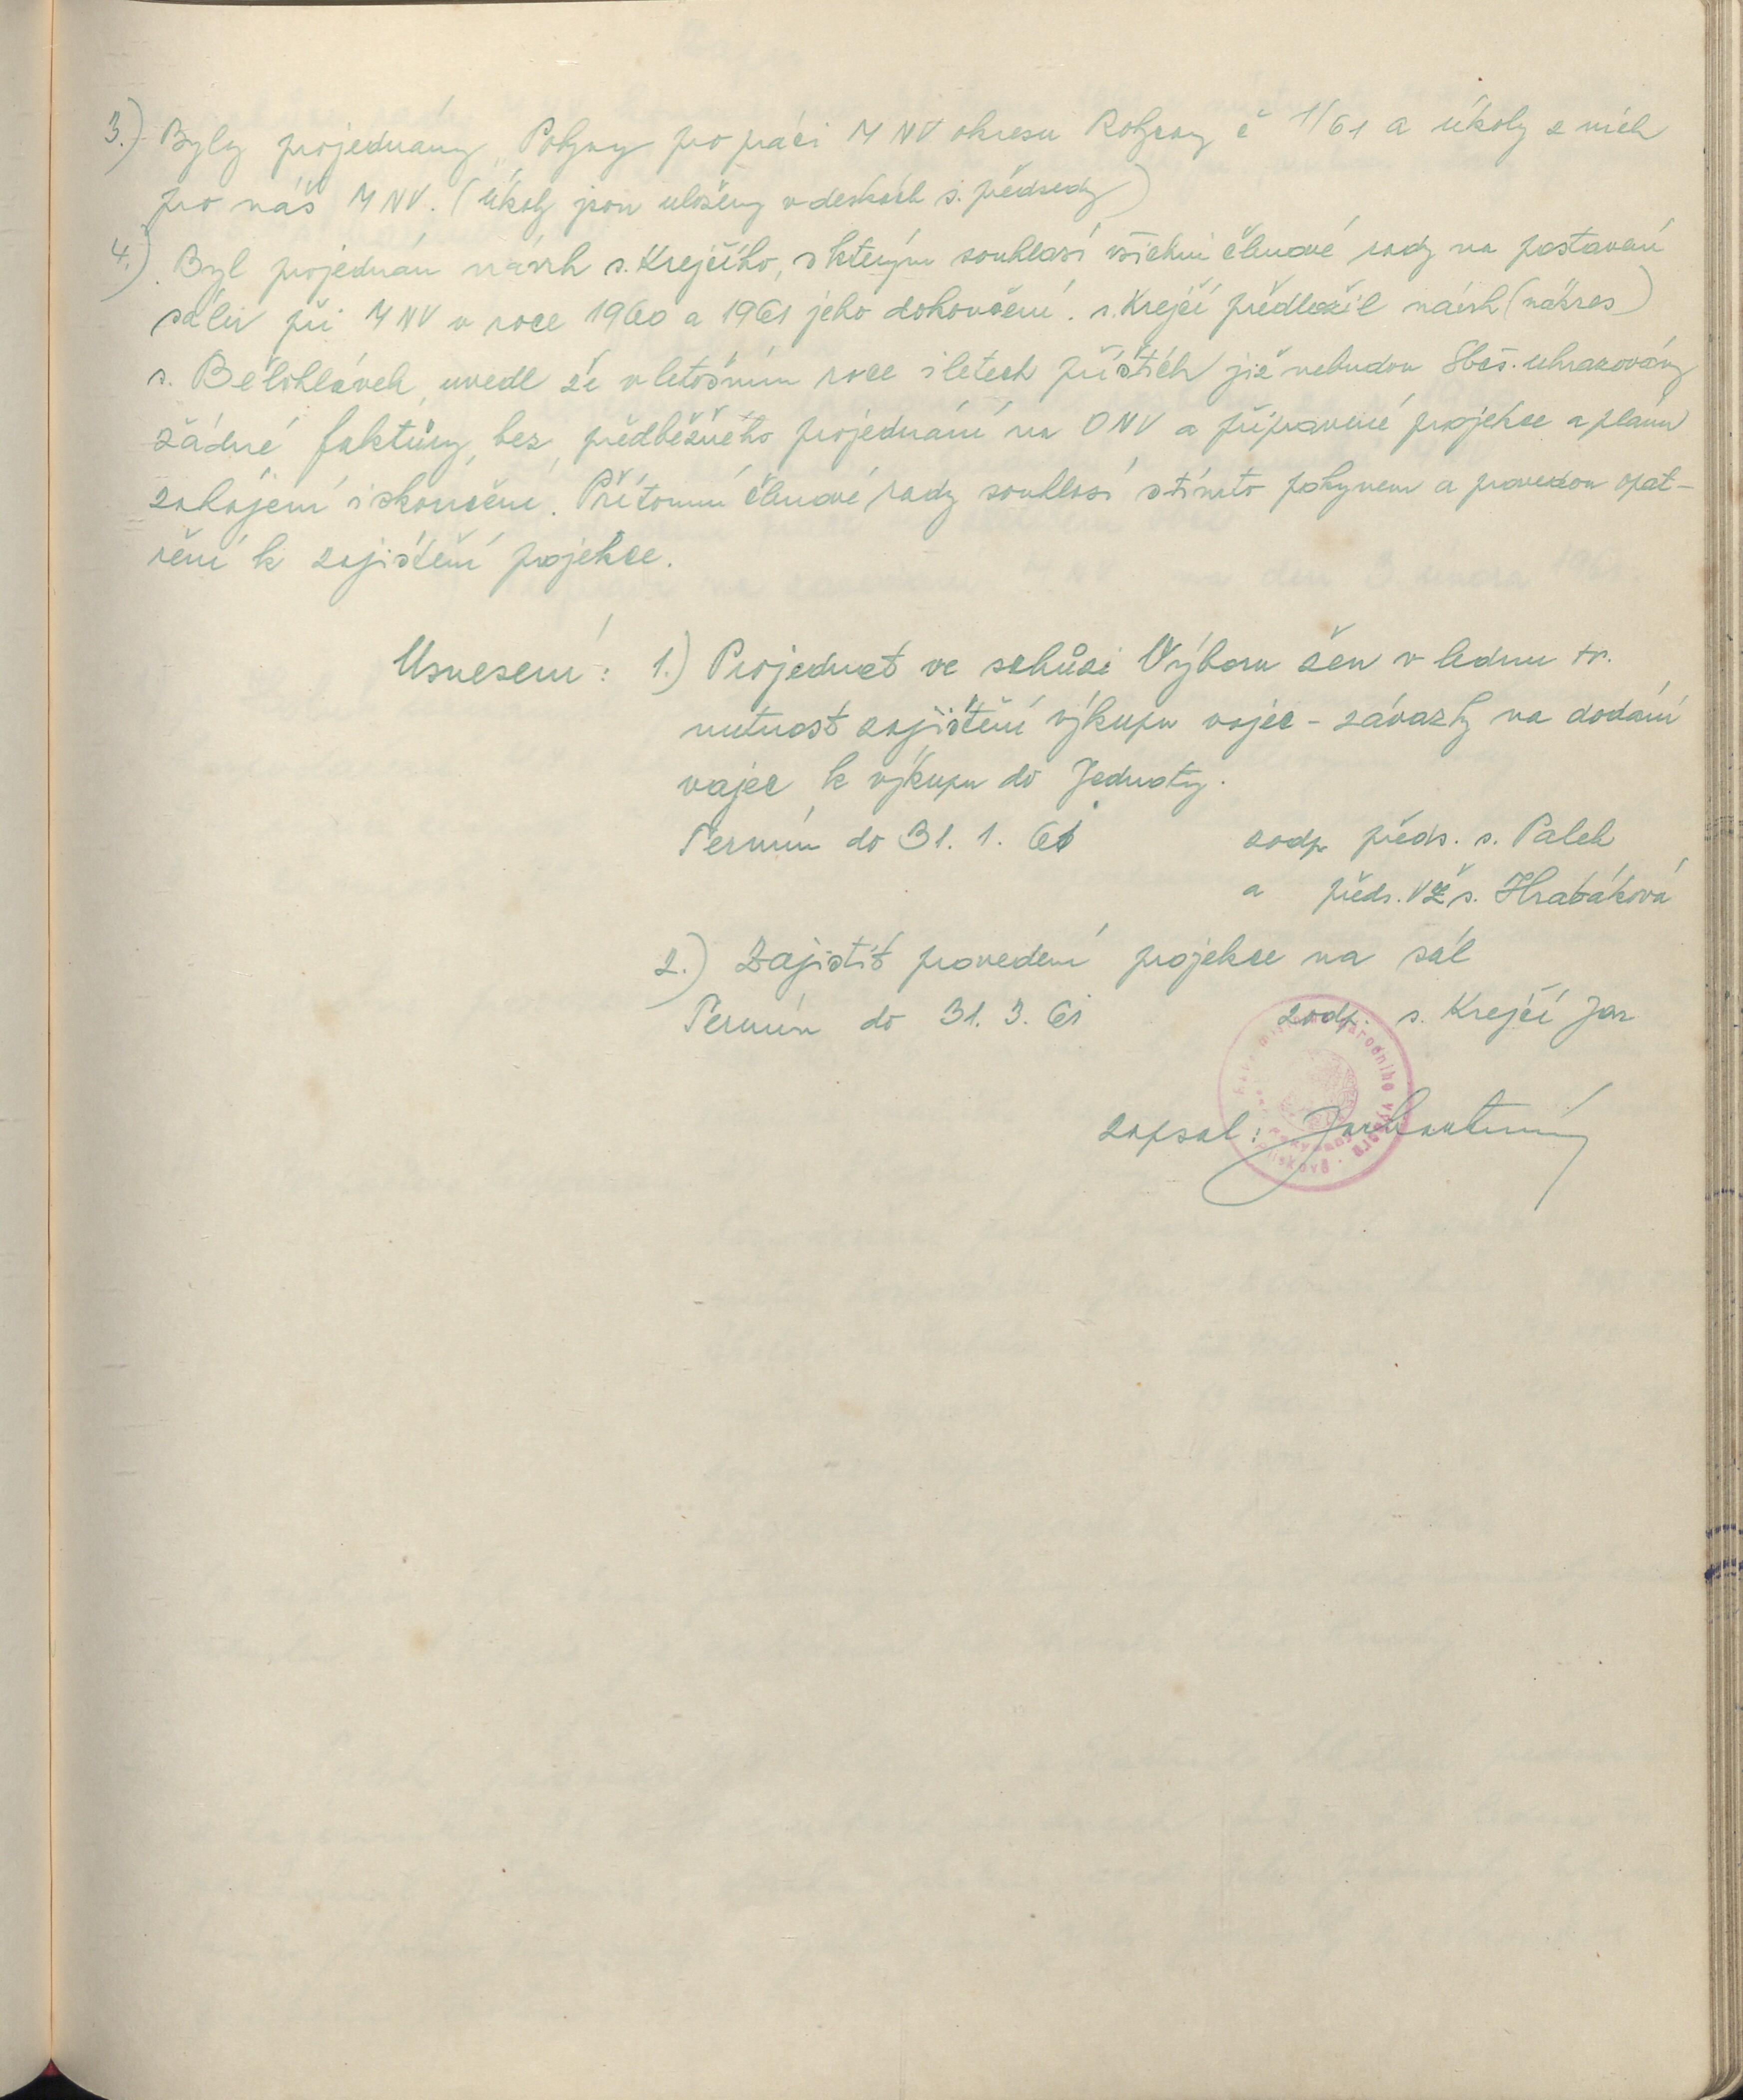 3.) Byly projednány Pokyny pro práci MNV okresu Rokycany č 1/61 a úkoly z nich
pro náš MNV. (Úkoly jsou uloženy v deskách s. předsedy)
4.) Byl projednán návrh s. Krejčího, s kterým souhlasí všichni členové rady na postavení
sálu při MNV v roce 1960 a 1961 jeho dokončení. s. Krejčí předložil návrh (nákres)
s. Bělohlávek, uvedl že v letošním roce i letech příštích již nebudou Sbčs. uhrazovány
žádné faktůry, bez předběžného projednání na ONV a připravené projekce a plánu
zahájení i skončení. Přítomní členové rady souhlasí s tímto pokynem a provedou opat-
ření k zajištění projekce.
Usnesení: 1.) Projednat ve schůzi Výboru žen v lednu tr.
nutnost zajištění výkupu vajec - závazky na dodání
vajec k výkupu do Jednoty.
Termín do 31. 1. 61 zodp. předs. s. Palek
a předs. VŽ s. Hrabáková
2.) Zajistit provedení projekce na sál
Termín do 31. 3. 61 zodp. s. Krejčí Jar
zapsal:
národního výboru